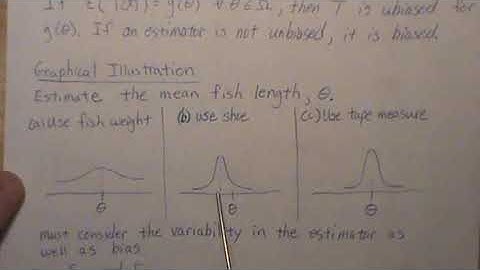 If E(T(X)) = g(θ) ∀ θ∈Ω, then T is unbiased for
g(θ). If an estimator is not unbiased, it is biased.
Graphical Illustration
Estimate the mean fish length, θ.
(a) Use fish weight
(b) use shoe
(c) Use tape measure
θ
θ
θ
must consider the variability in the estimator as
well as bias